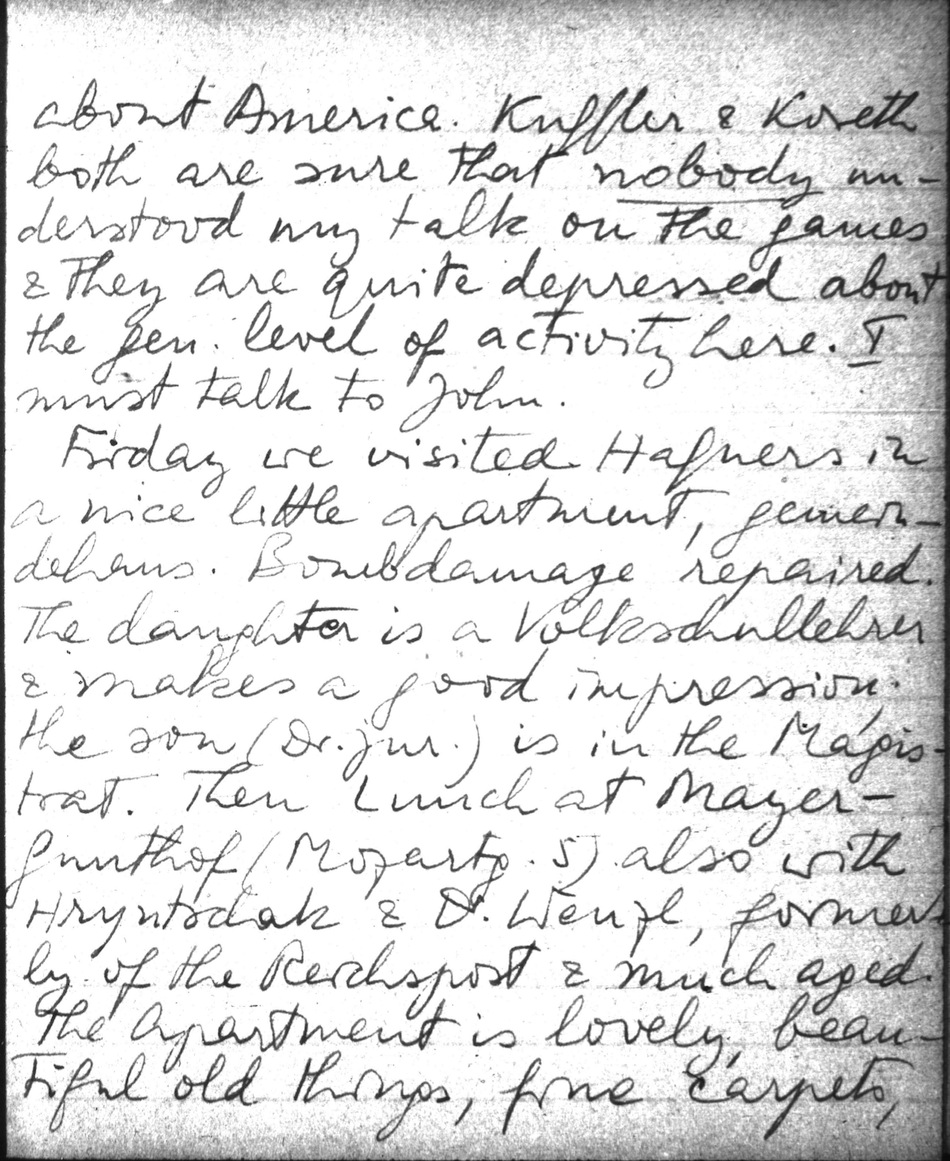 about America. Kuffler & Koreth
both are sure that nobody un-
derstood my talk on the games
& they are quite depressed about
the gen. level of activity here. I
must talk to John.
Friday we visited Hafners in
a nice little apartment, gemein-
dehaus. Bombdamage repaired.
The daughter is a Volksschullehrer
& makes a good impression;
the son (Dr. jur.) is in the Magis-
trat. Then Lunch at Mayer-
gunthof (Mozartg. 5) also with
Hryntschak & Dr. Wenzl, former-
ly of the Reichspost & much aged.
The Apartment is lovely, beau-
tiful old things, fine carpets,